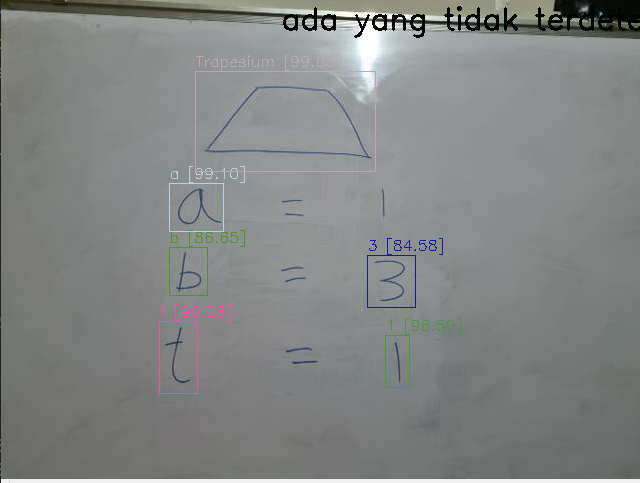 ada yang tidak terdete
Trapesium [99.65]
a [99.10]
a = 1
b [86.65] 3 [84.58]
b = 3
t [96.23] 1 [96.50]
t = 1